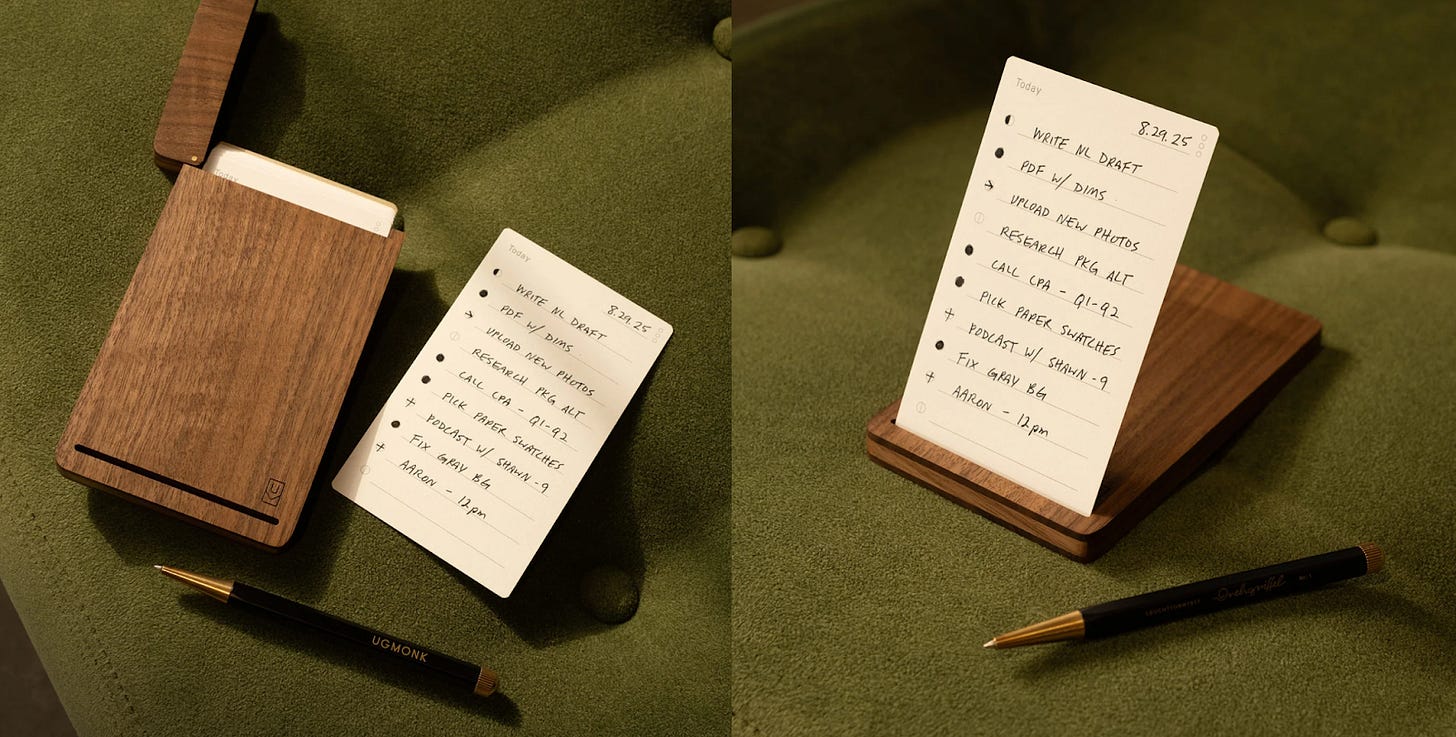 Today
Today
8.29.25
WRITE NL DRAFT
PDF W/ DIMS
UPLOAD NEW PHOTOS
RESEARCH PKG ALT
CALL CPA - Q1-Q2
PICK PAPER SWATCHES
PODCAST W/ SHAWN - 9
FIX GRAY BG
AARON - 12pm
UGMONK
Today
8.29.25
WRITE NL DRAFT
PDF W/ DIMS
UPLOAD NEW PHOTOS
RESEARCH PKG ALT
CALL CPA - Q1-Q2
PICK PAPER SWATCHES
PODCAST W/ SHAWN - 9
FIX GRAY BG
AARON - 12pm
LEUCHTTURM1917 Drehgriffel No. 1